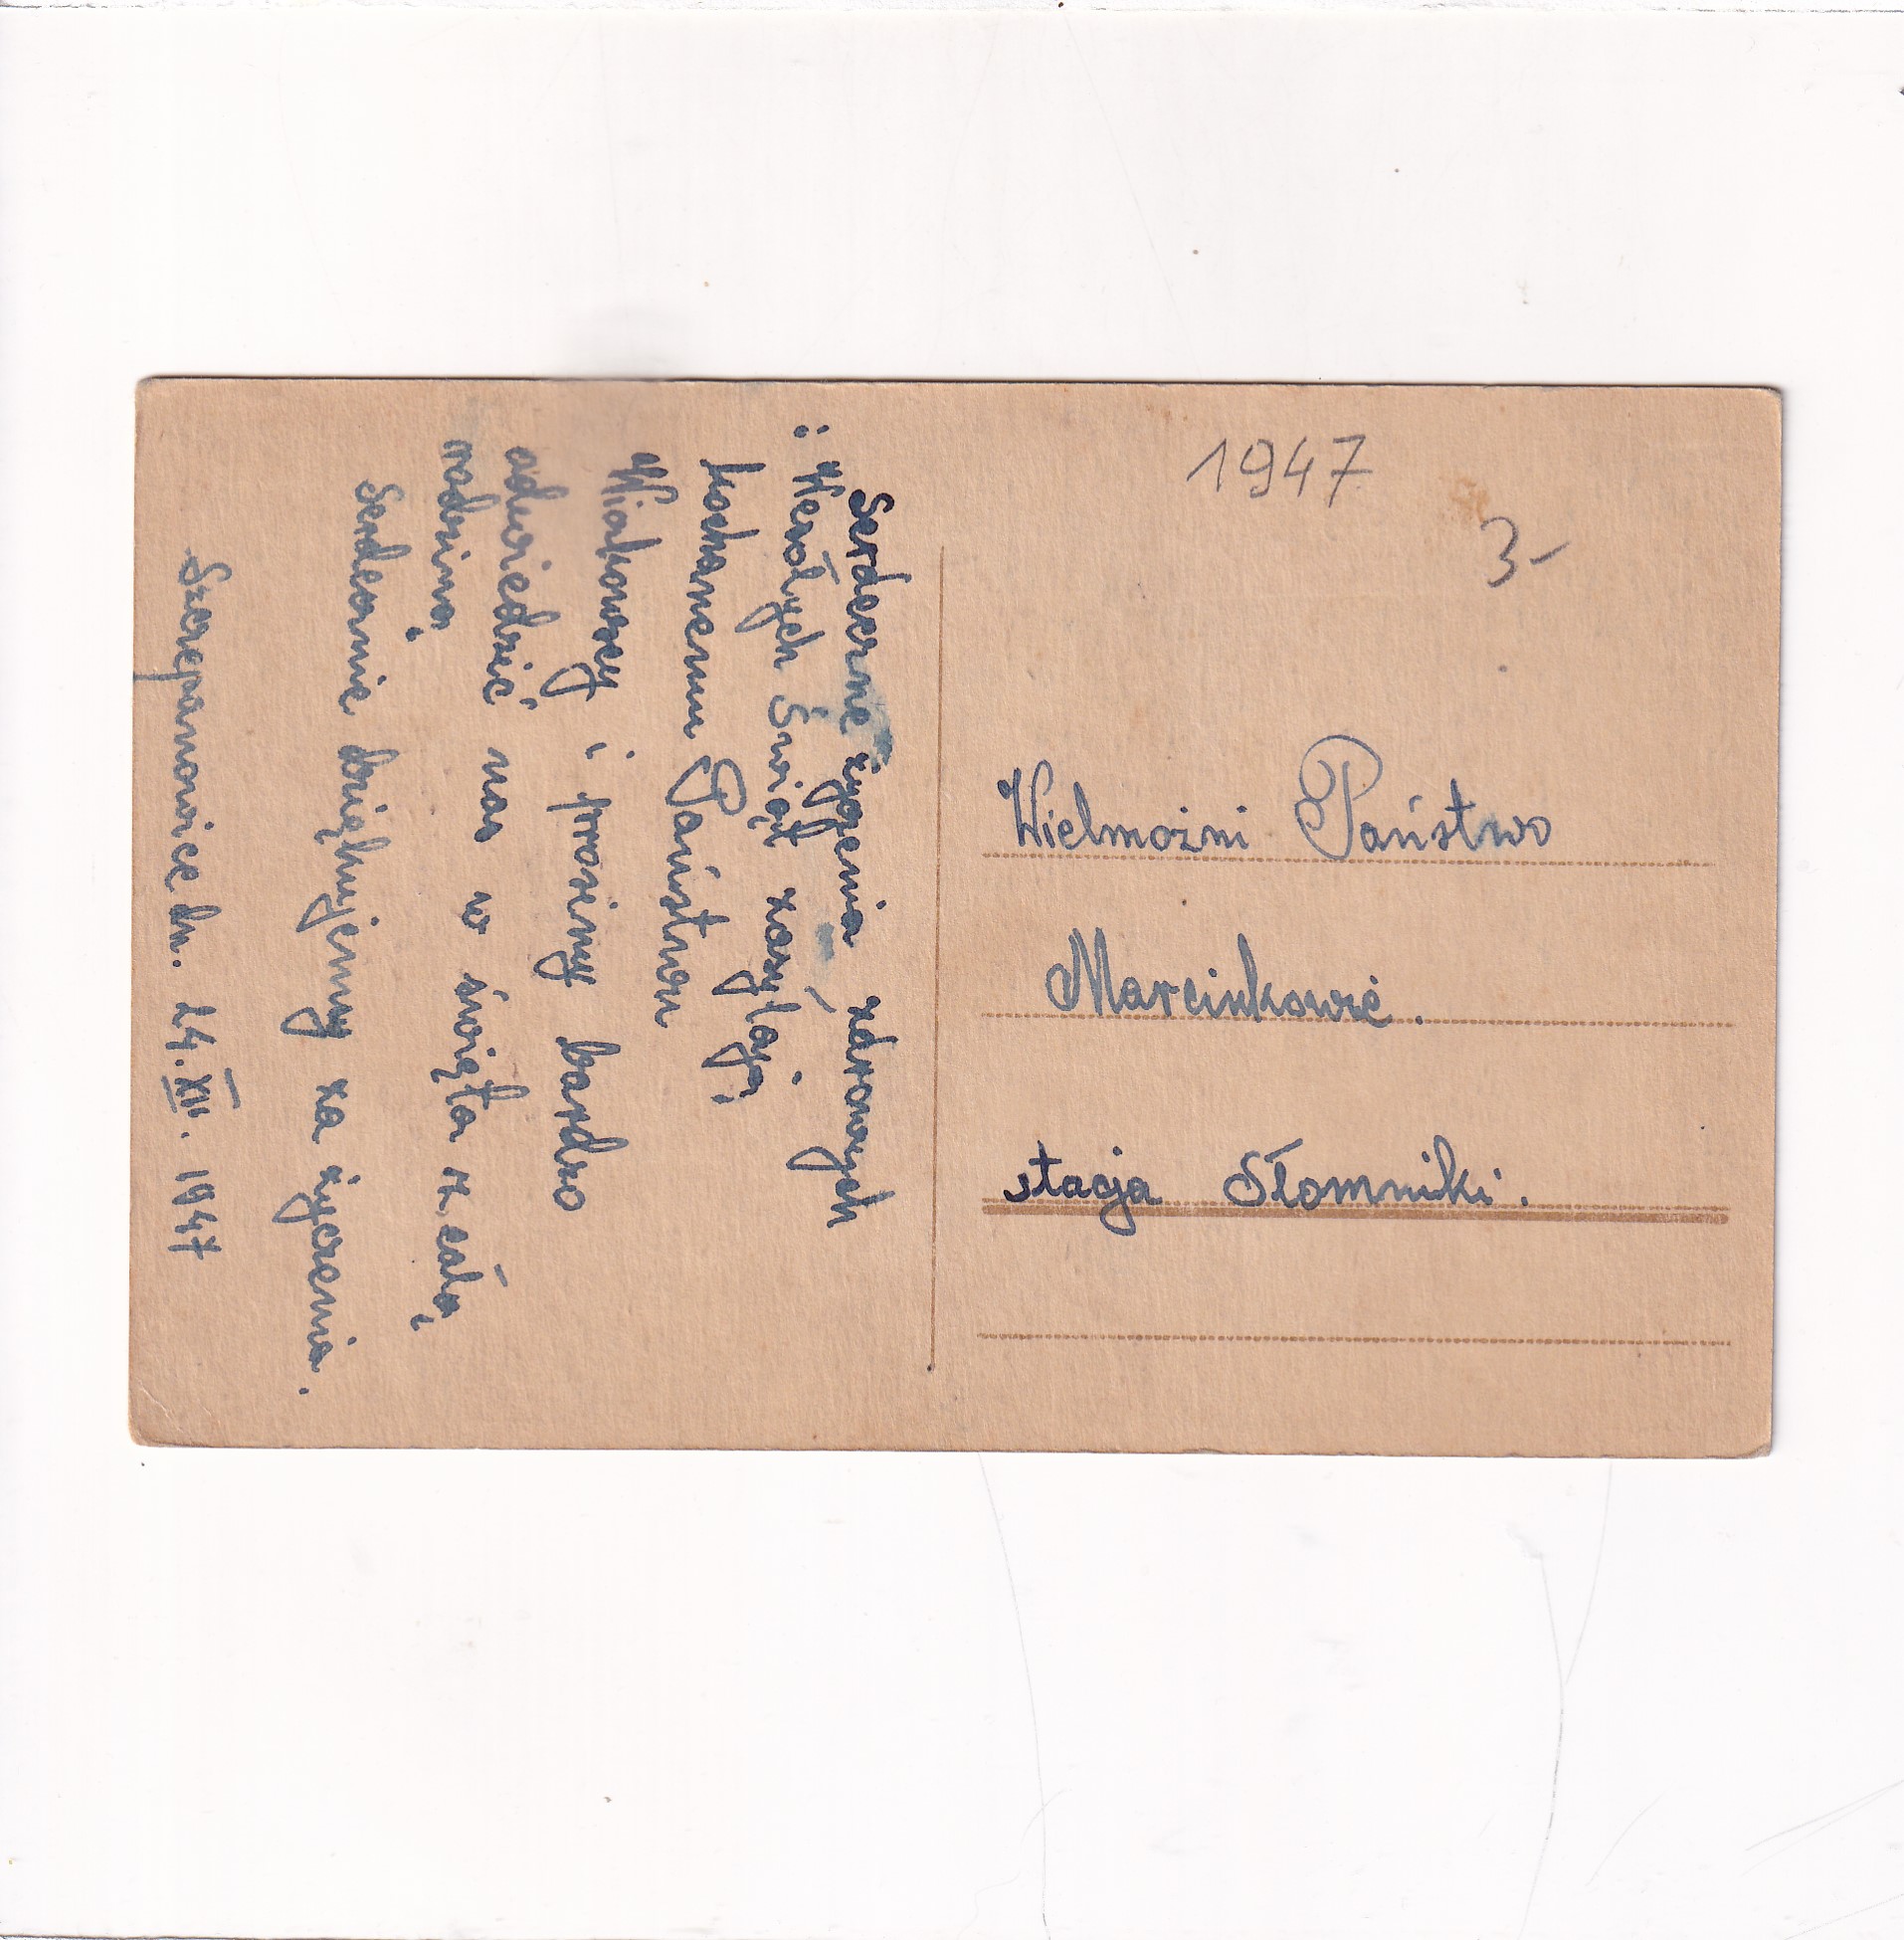 Serdeczne życzenia zdrowych
i Wesołych Świąt zasyłają
kochanemu Państwu
i prosimy bardzo
odwiedzić nas w święta z całą
rodziną.
Serdecznie dziękujemy za życzenia.
Szczepanowice dn. 24.XII. 1947
1947
3-
Wielmożni Państwo
stacja Słomniki.